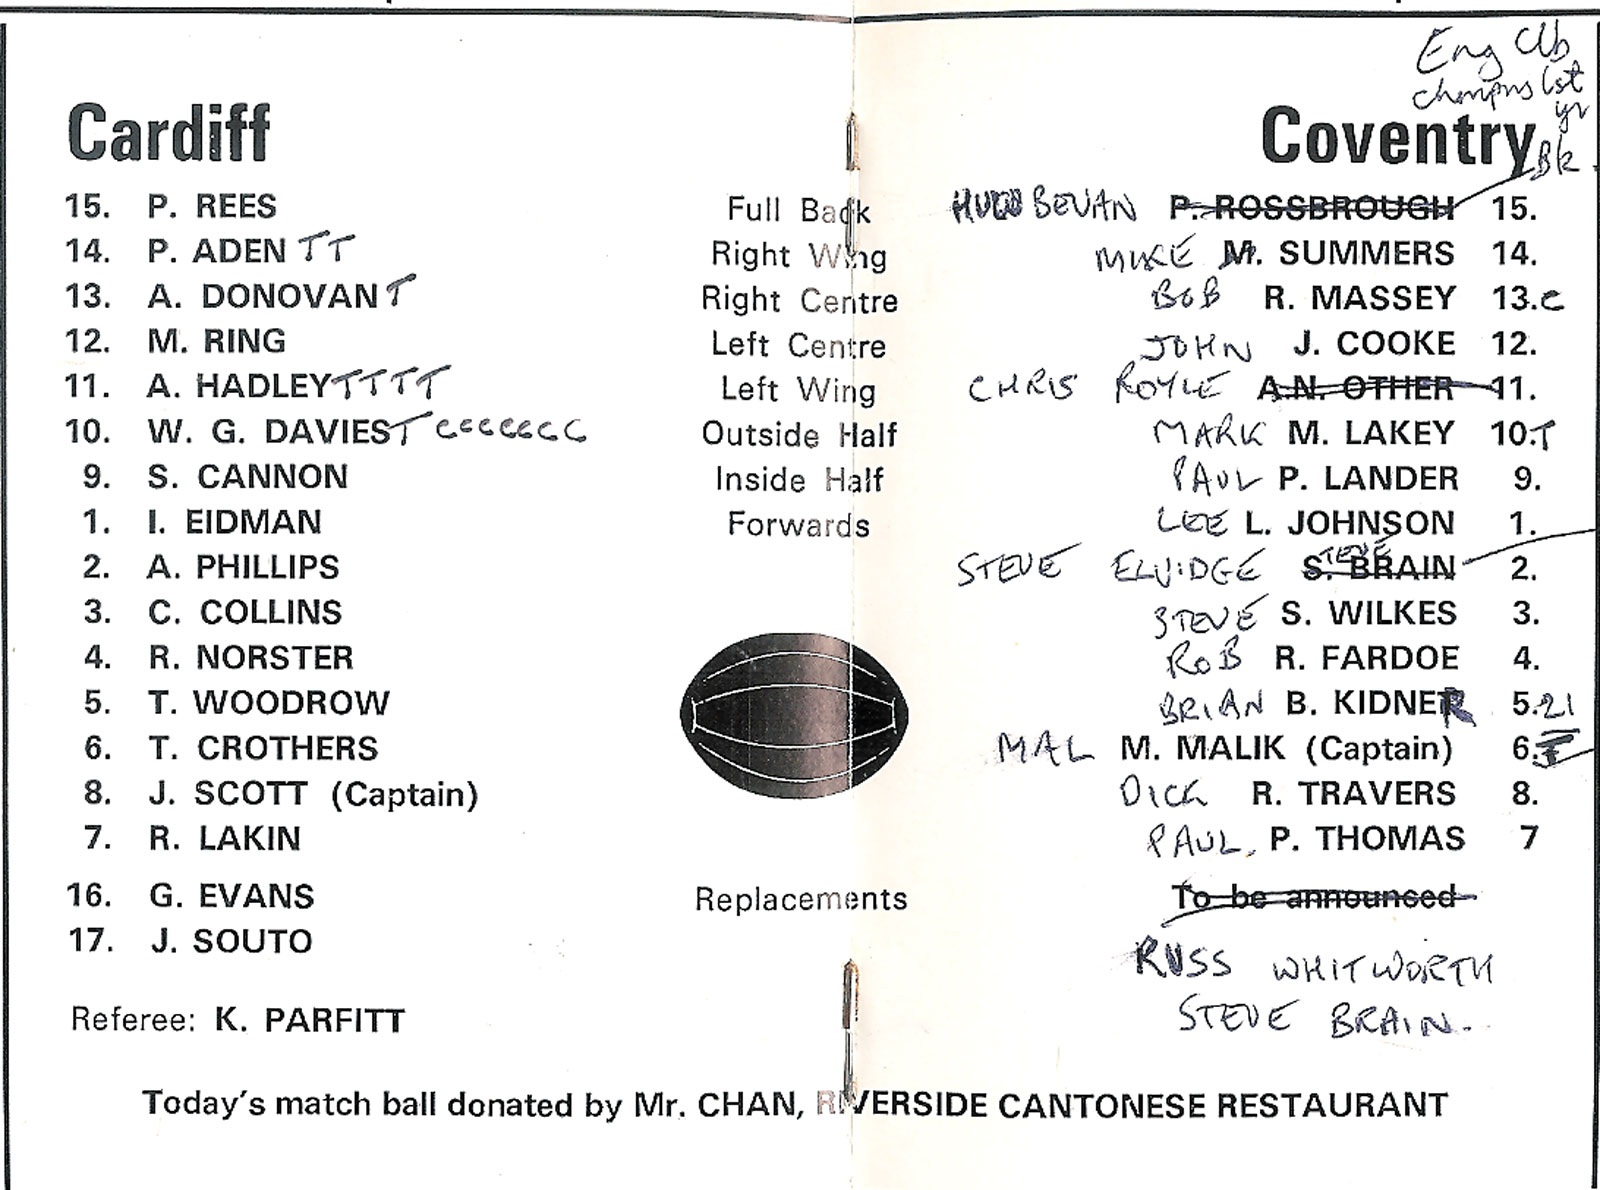 Eng Clb
champns lst
yr
Cardiff Coventry
Bk
15. P. REES Full Back BEVAN P. ROSSBROUGH 15.
14. P. ADEN TT Right Wing MIKE M. SUMMERS 14.
13. A. DONOVAN T Right Centre BOB R. MASSEY 13. c
12. M. RING Left Centre JOHN J. COOKE 12.
11. A. HADLEY TTTT Left Wing CHRIS ROYLE A.N. OTHER 11.
10. W. G. DAVIES T ccccccc Outside Half MARK M. LAKEY 10. T
9. S. CANNON Inside Half PAUL P. LANDER 9.
1. I. EIDMAN Forwards LEE L. JOHNSON 1.
2. A. PHILLIPS STEVE ELVIDGE S. STEVE BRAIN 2.
3. C. COLLINS STEVE S. WILKES 3.
4. R. NORSTER ROB R. FARDOE 4.
5. T. WOODROW BRIAN B. KIDNER 5. 21
6. T. CROTHERS MAL M. MALIK (Captain) 6.
8. J. SCOTT (Captain) DICK R. TRAVERS 8.
7. R. LAKIN PAUL. P. THOMAS 7
16. G. EVANS Replacements To be announced
17. J. SOUTO
RUSS WHITWORTH
Referee: K. PARFITT STEVE BRAIN.
Today's match ball donated by Mr. CHAN, RIVERSIDE CANTONESE RESTAURANT